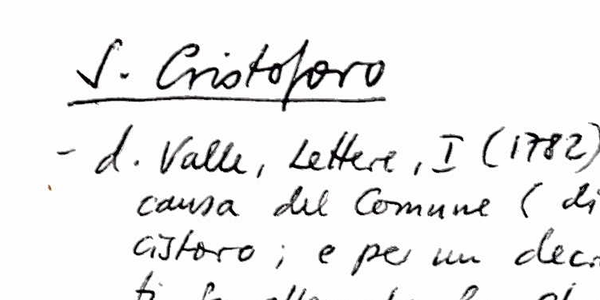 S. Cristoforo
- d. Valle, Lettere, I (1782)
causa del Comune ( di
cistoro; e per un decr